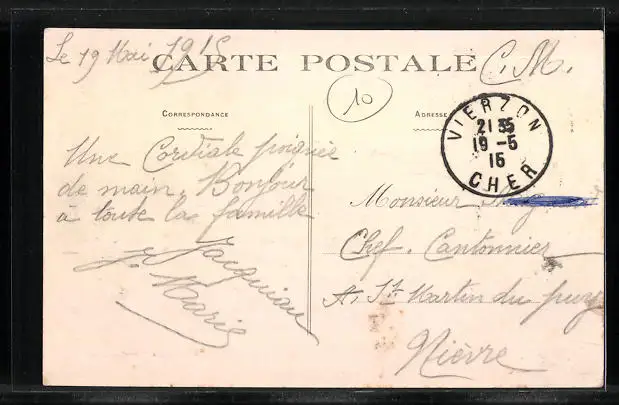 Le 19 Mai 1915
CARTE POSTALE
C.M.
10
CORRESPONDANCE
ADRESSE
VIERZON
21 35
19 -5
15
CHER
Une Cordiale poignée
de main. Bonjour
à toute la famille
J. Jacquian
Marie
Monsieur
Chef. Cantonnier
A, St Martin du puy
Nièvre